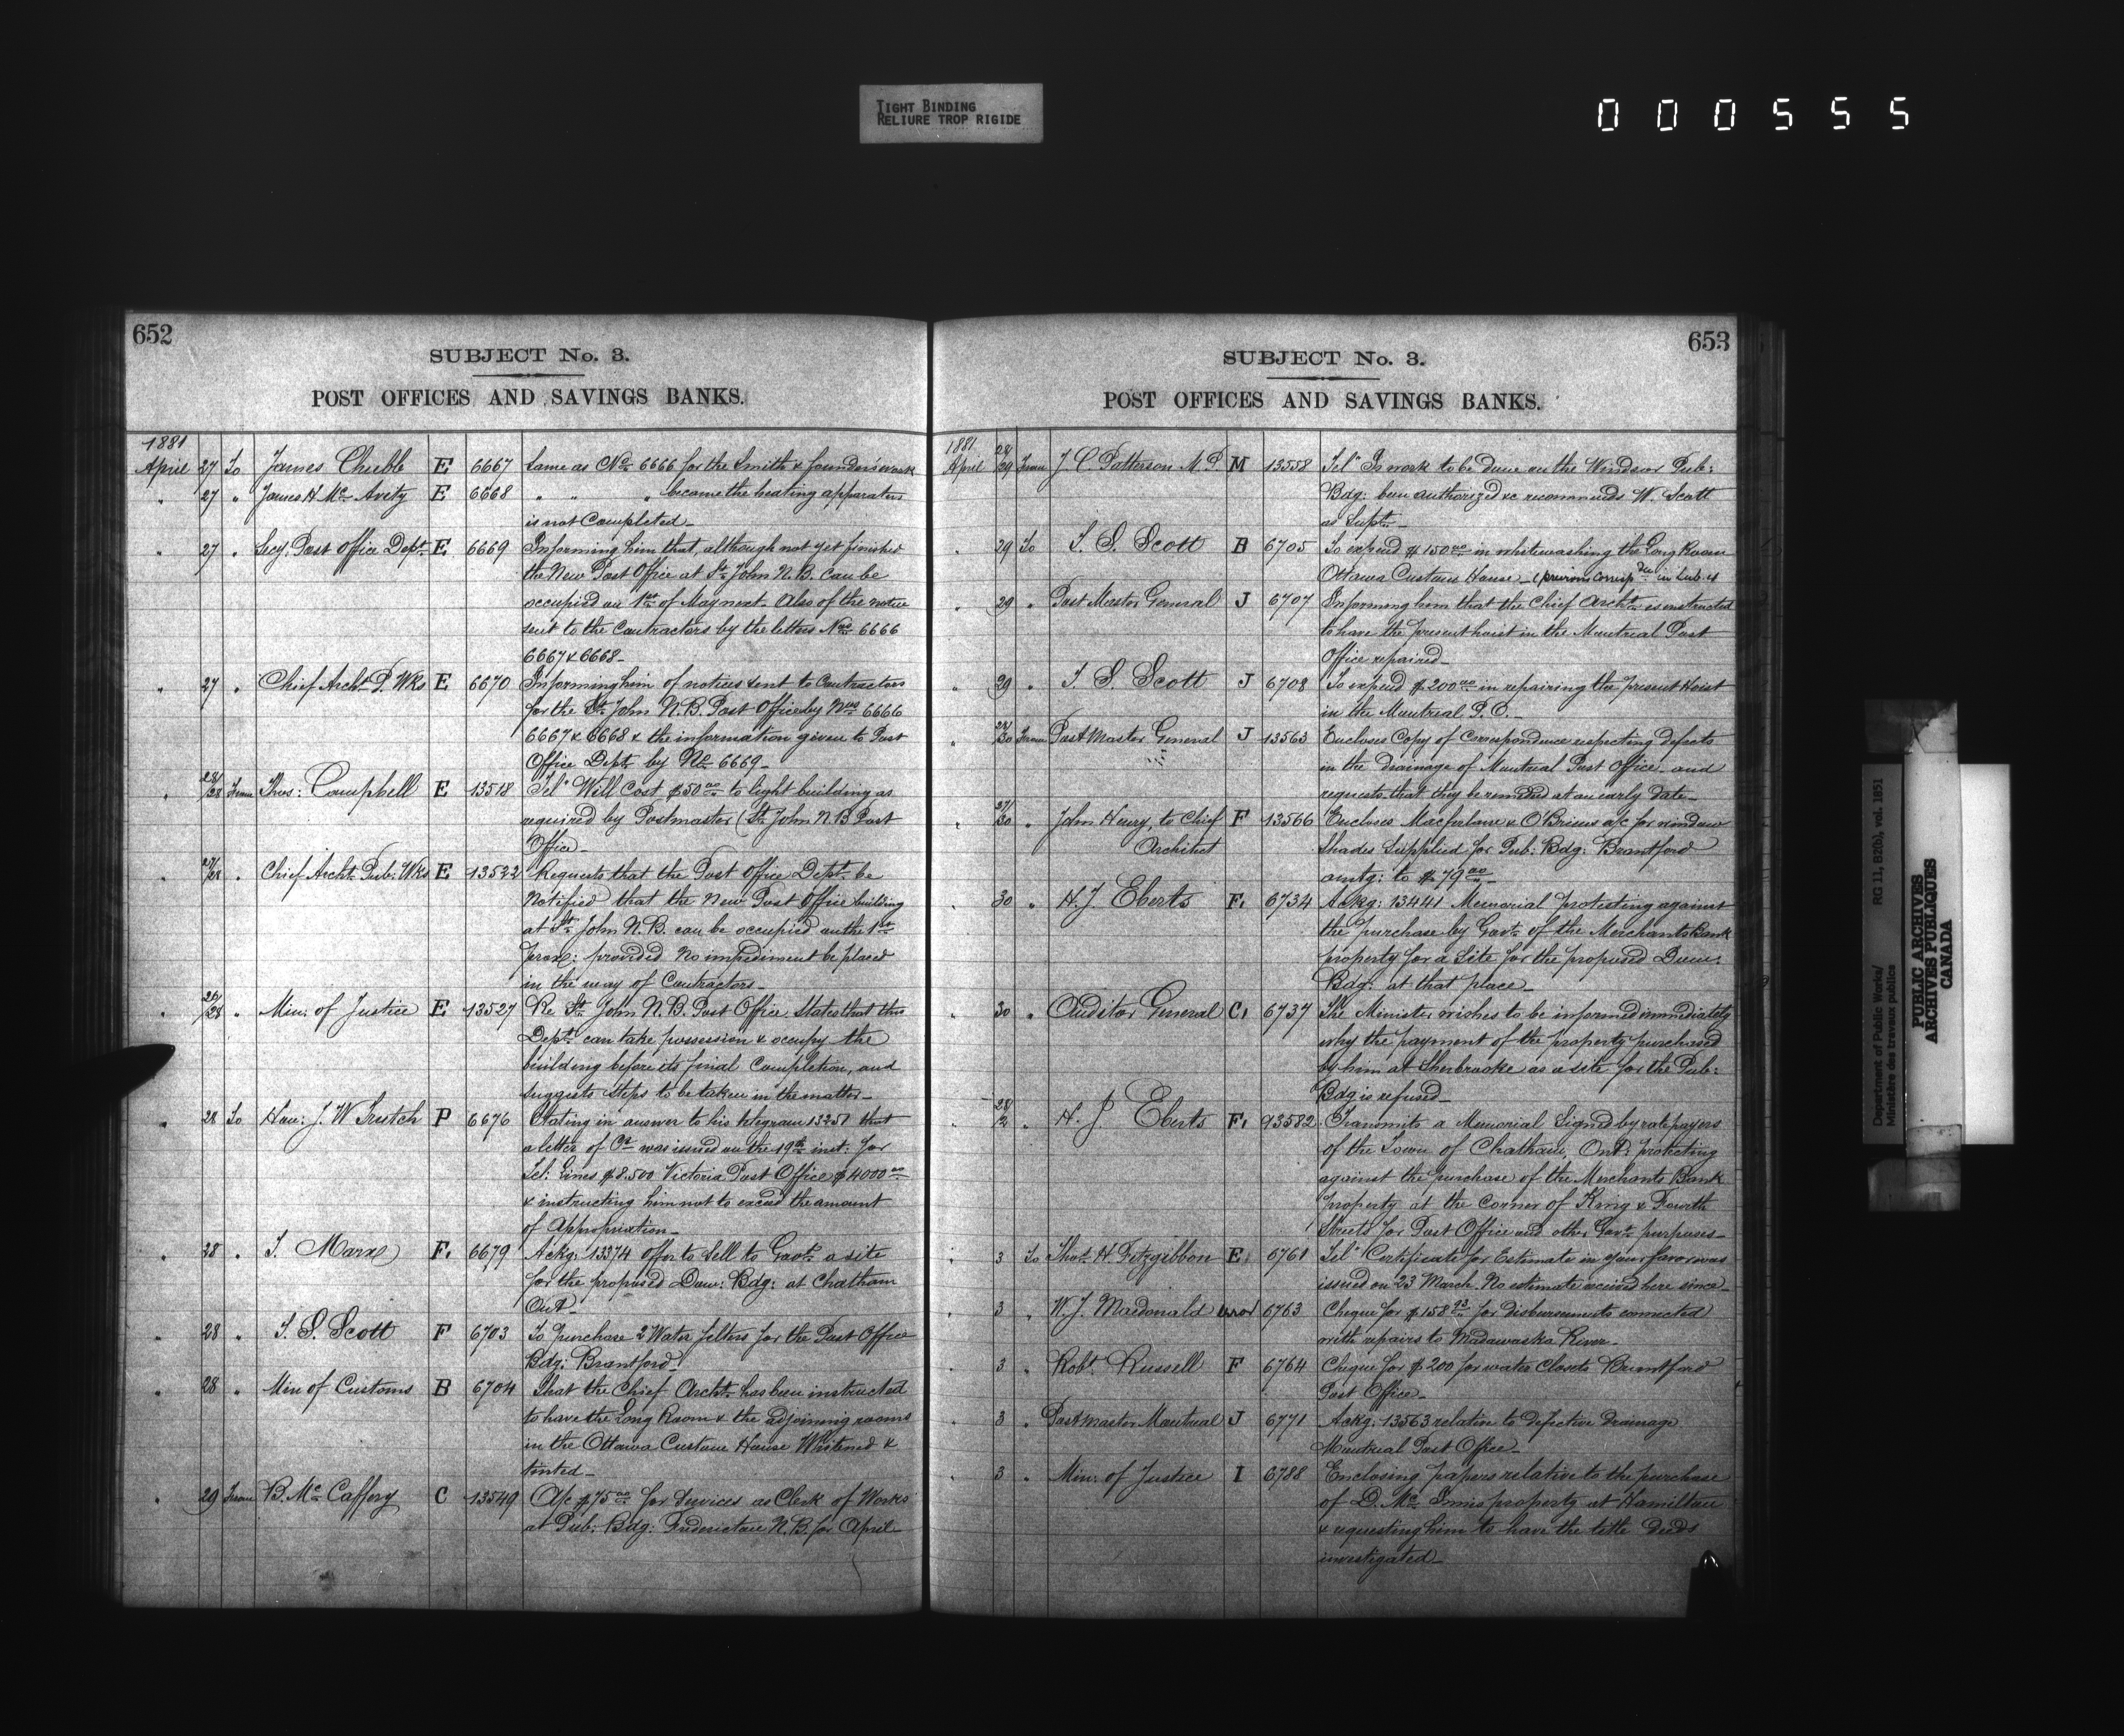 TIGHT BINDING
RELIURE TROP RIGIDE
000555
652
SUBJECT No. 3.
POST OFFICES AND SAVINGS BANKS.
1881
April 27 To James Chubb E 6667 Same as No. 6666 for the Smith & founders work
" 27 " James H Mc Avity E 6668 " " " because the heating apparatus
is not Completed
" 27 " Secy: Post Office Dept. E 6669 Informing him that, although not yet finished
the New Post Office at St. John N.B. can be
occupied on 1st of May next. Also of the notice
sent to the Contractors by the letters Nos 6666
6667 & 6668
" 27 " Chief Archt. P. Wks E 6670 Informing him of notices sent to Contractors
for the St. John N.B. Post Office by Nos 6666
6667 & 6668 & the information given to Post
Office Dept. by No. 6669
" 28/28 From Thos: Campbell E 13518 Tel" Will Cost $50 00 to light building as
required by Postmaster (St. John N.B Post
Office
" 27/28 " Chief Archt. Pub: Wks E 13522 Requests that the Post Office Dept. be
Notified that the New Post Office building
at St. John N.B. can be occupied on the 1st
prox: provided No impediment be placed
in the way of Contractors
" 26/28 " Min: of Justice E 13527 Re St. John N.B. Post Office States that this
Dept. can take possession & occupy the
building before its final Completion, and
suggests steps to be taken in the matter
28 To Hon: J. W Trutch P 6676 Stating in answer to his telegram 13251 that
a letter of Ct was issued on the 19th inst: for
Tel: Lines $8.500 Victoria Post Office $4000 00
& instructing him not to exceed the amount
of Appropriation
" 28 " S. Marx F. 6679 Ackg: 13374 offer to Sell to Govt. a site
for the proposed Dom: Bdg: at Chatham
Ont
" 28 " T. S. Scott F 6703 To purchase 2 Water filters for the Post Office
Bdg: Brantford
" 28 " Min of Customs B 6704 That the Chief Archt. has been instructed
to have the Long Room & the adjoining rooms
in the Ottawa Custom House Whitened &
tinted
" 29 From B. Mc Caffery C 13549 A/c $75 00 for Services as Clerk of Works
at Pub: Bdg: Fredericton N.B. for April
653
SUBJECT No. 3.
POST OFFICES AND SAVINGS BANKS.
1881
April 28/29 From J C. Patterson M.P M 13558 Tel" Is work to be done on the Windsor Pub:
Bdg: been authorized &c recommends W. Scott
as Supt.
" 29 To T. S. Scott B 6705 To expend $150 00 in whitewashing the Long Room
Ottawa Customs House (previous corresp in Sub. 4
" 29 " Post Master General J 6707 Informing him that the Chief Archt. is instructed
to have the present hoist in the Montreal Post
Office repaired
" 29 " T. S. Scott J 6708 To expend $200 00 in repairing the present Hoist
in the Montreal P.O.
" 28/30 From Post Master General J 13563 Encloses Copy of Correspondence respecting defects
in the drainage of Montreal Post Office and
requests that they be remedied at an early date
" 27/30 " John Henry, to Chief F 13566 Encloses Macfarlane & O'Briens a/c for window
Architect Shades Supplied for Pub: Bdg: Brantford
amtg: to $79 00
" 30 " H. J Eberts F. 6734 Ackg: 13441 Memorial protesting against
the purchase by Govt. of the Merchants Bank
property for a Site for the proposed Dom:
Bdg: at that place
" 30 " Auditor General C. 6737 The Minister wishes to be informed immediately
why the payment of the property purchased
by him at Sherbrooke as a site for the Pub:
Bdg is refused
" 28/2 " H. J Eberts F. 13582 Transmits a Memorial Signed by ratepayers
of the Town of Chatham, Ont: protesting
against the purchase of the Merchants Bank
property at the Corner of King & Fourth
Streets for Post Office and other Govt. purposes
" 3 To Thos. H Fitzgibbon E. 6761 Tel" Certificate for Estimate in your favor was
issued on 23 March. No estimate received here since
" 3 " W. J. Macdonald 6763 Cheque for $158 93 for disbursements connected
with repairs to Madawaska River
" 3 " Robt. Russell F 6764 Cheque for $200 for water Closets Brantford
Post Office
" 3 " Postmaster Montreal J 6771 Ackg: 13563 relative to defective drainage
Montreal Post Office
" 3 " Min: of Justice I 6788 Enclosing papers relative to the purchase
of D. Mc Innis property at Hamilton
& requesting him to have the title deeds
investigated
Department of Public Works/ RG 11, B2(b), vol. 1851
Ministère des travaux publics
PUBLIC ARCHIVES
ARCHIVES PUBLIQUES
CANADA